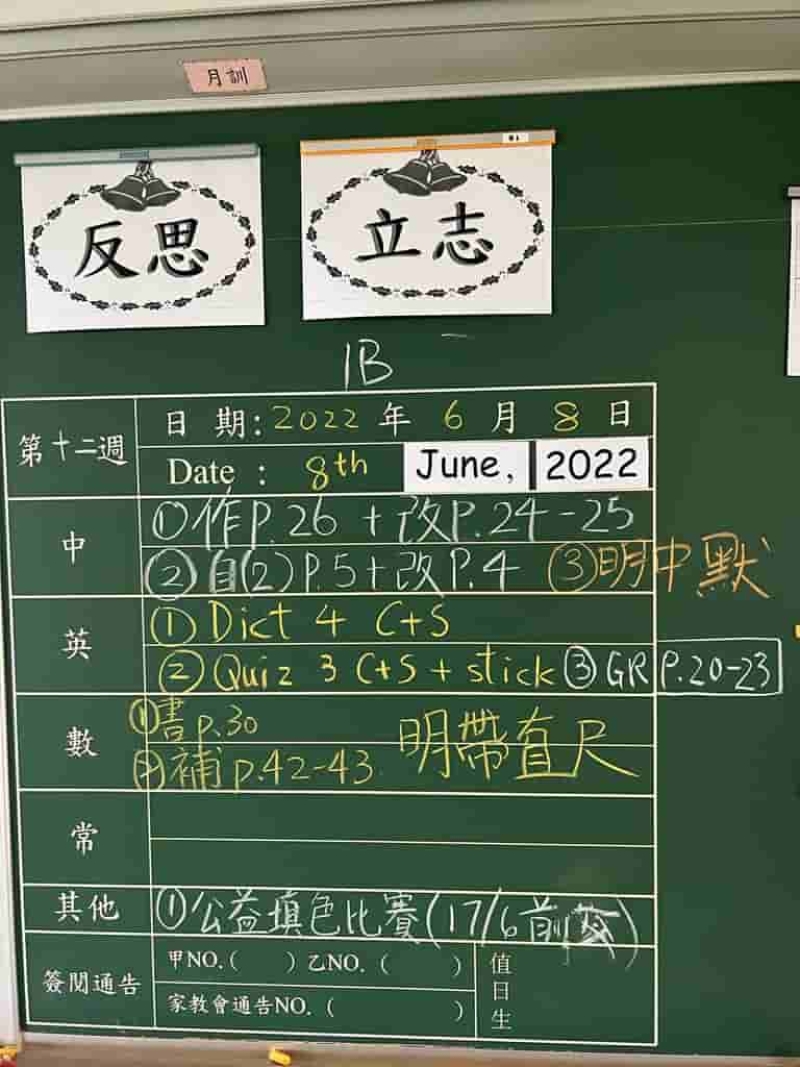 月訓
反思
立志
1B
第十二週
日 期：2022 年 6 月 8 日
Date : 8th June, 2022
中
①作P.26 + 改P.24-25
②自(2)P.5+改P.4 ③明中默
英
①Dict 4 C+S
②Quiz 3 C+S + stick ③GR P.20-23
數
①書p.30
②補p.42-43 明帶直尺
常
其他
①公益填色比賽(17/6前)
簽閱通告
甲NO.( ) 乙NO. ( )
家教會通告NO. ( )
值日生